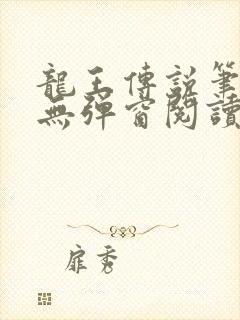 龍王傳說筆
無彈窗閱讀
扉秀